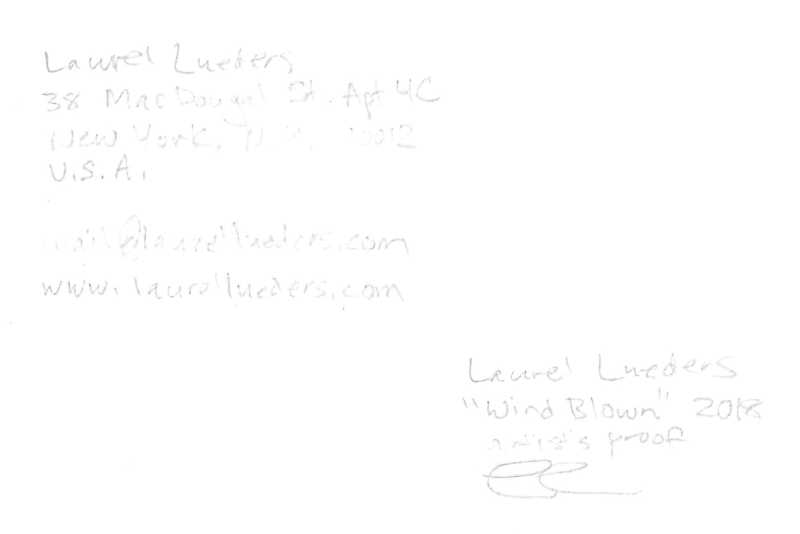 Laurel Lueders
38 MacDougal St. Apt 4C
New York, N.Y. 10012
U.S.A.
mail@laurellueders.com
www.laurellueders.com
Laurel Lueders
"Wind Blown" 2018
artist's proof